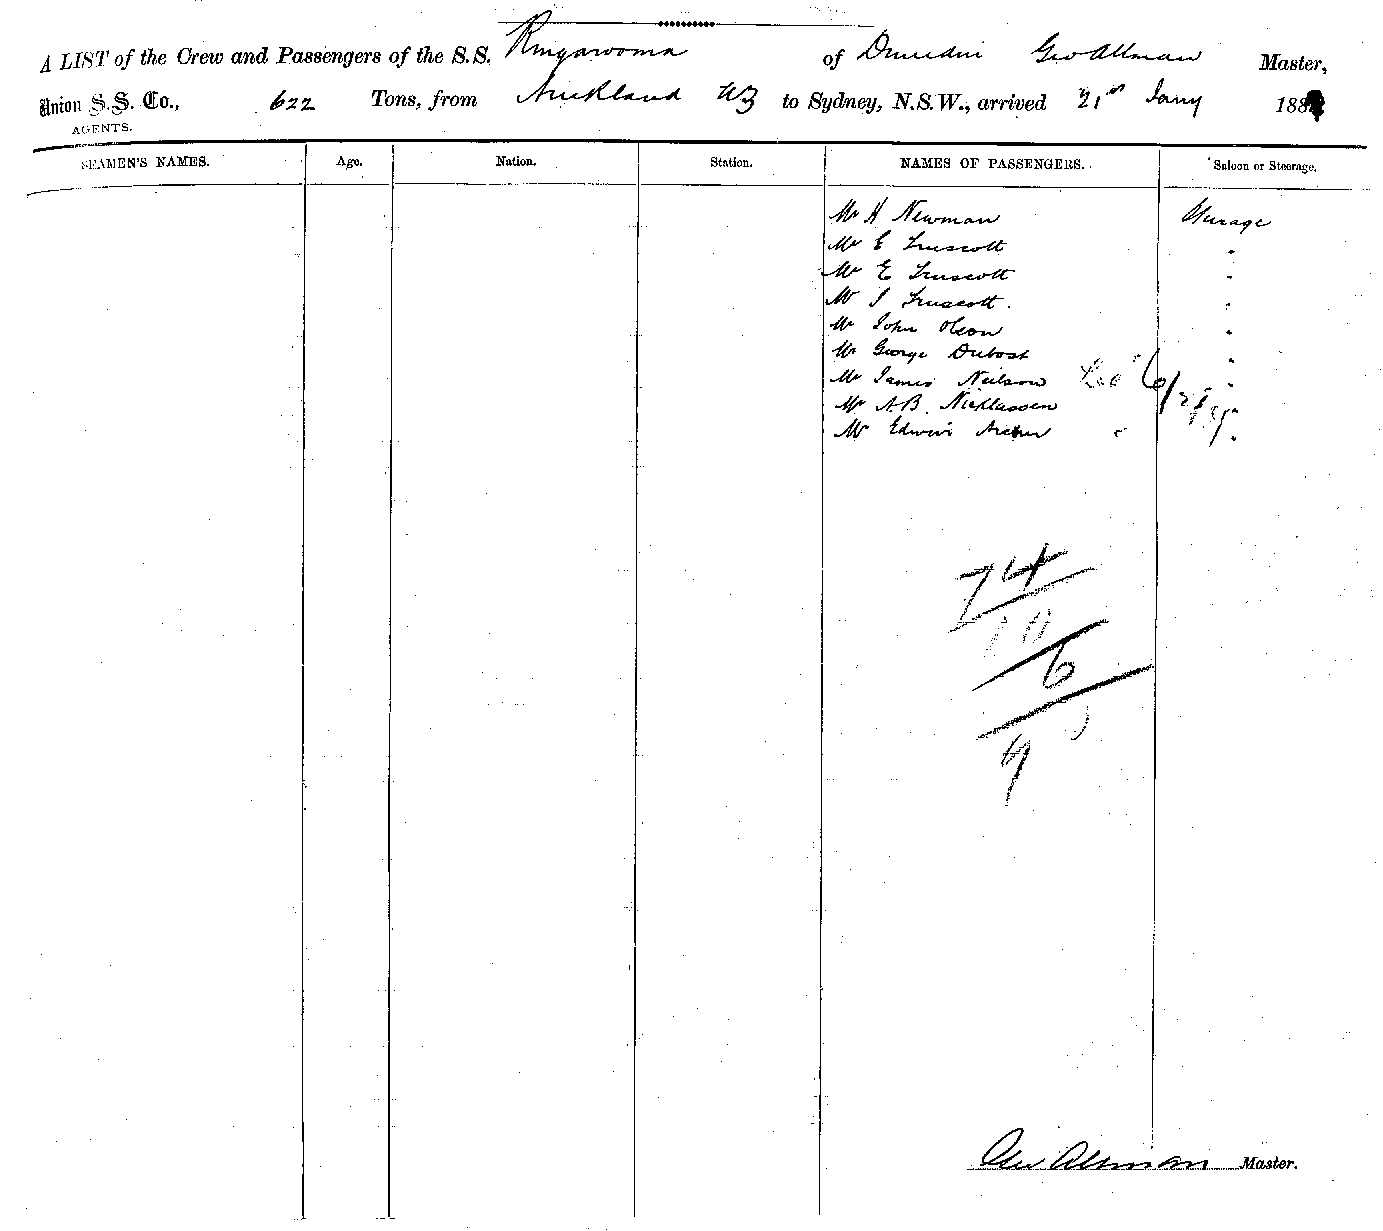 A LIST of the Crew and Passengers of the S.S. Ringarooma of Dunedin Geo Allman Master,
Union S.S. Co., 622 Tons, from Auckland NZ to Sydney, N.S.W., arrived 21st Jany 188
AGENTS.
SEAMEN'S NAMES. Age. Nation. Station. NAMES OF PASSENGERS. Saloon or Steerage.
Mr H Newman Steerage
Mr E Truscott "
Mr E Truscott "
Mr J Truscott. "
Mr John Olson "
Mr George Dubost "
Mr James Neilson "
Mr A.B. Nicklassen "
Mr Edwin Archer "
74
10
6
4
Geo Allman Master.